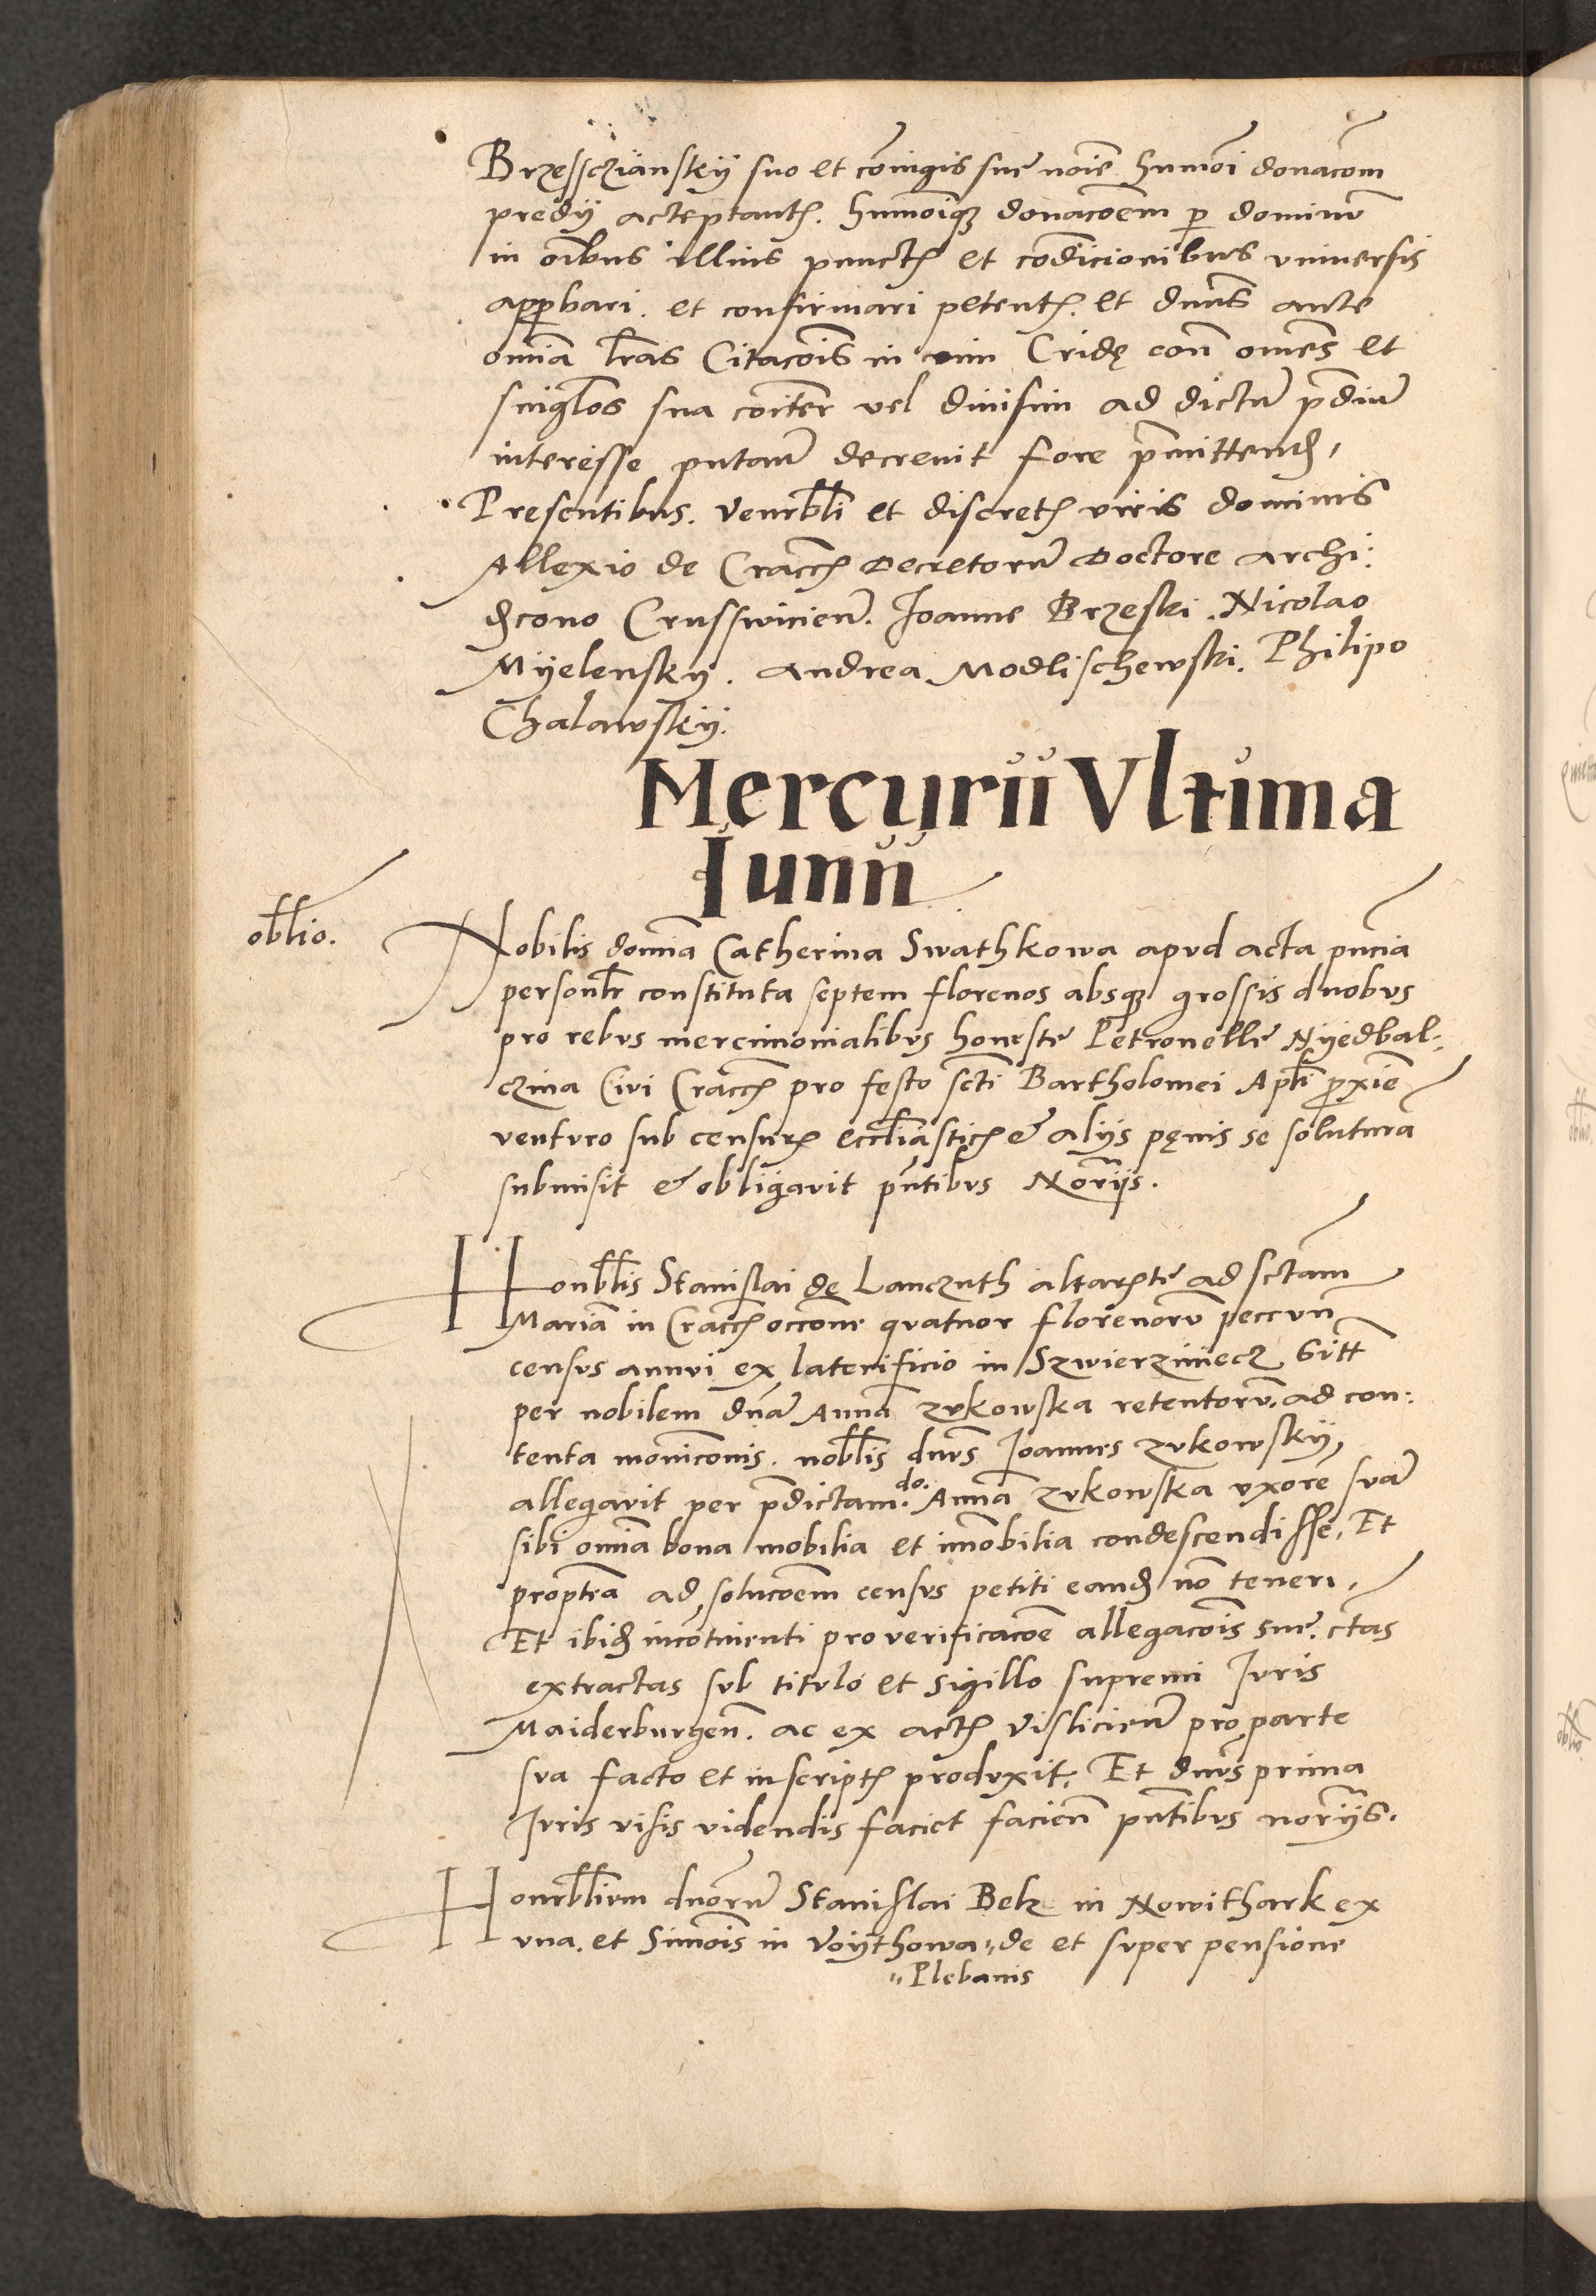 Brzessczianskÿ suo et cōiugis sue noīe huiūoi donacōm
predÿ acceptantꝭ. huiūoiqꝫ donacōem ꝑ dominū
in oībus illius punctꝭ et cōdicionibus vniuersis
apꝓbari. et confirmari petentꝭ. et dn̄us ante
omīa l̄ras Citacōis in vim Cridę con̄ omēs et
singłos sua cōiter vel diuisim ad dictū p̄diū
interesse putan̄ decreuit fore p̄mittend̄,
Presentibus. Venerbłi et discretꝭ viris dominis
Allexio de Craccꝭ decretorū doctore archi:
dcono Crusswicien̄. Joanne Brzeski. Nicolao
Mÿelenskÿ. Andrea Modlischewski. Philipo
Chalawskÿ.
Mercurii Vltima
Junii
obłłio.
Nobilis domīa Catherina Swathkowa apud acta pn̄cia
persōnłr constituta septem florenos absqꝫ grossis duobus
pro rebus mercimonialibus honeste Petronelle Nÿedbal:
czina Ciui Craccꝭ pro festo scti Bartholomei Apłi proxīe
venturo sub censurꝭ ecclīasticꝭ & alijs pęnis se soluturā
submisit & obligauit pn̄tibus Norijs.
Honbłłis Stanislai de Lanczuth altaristę ad sctam
Mariā in Craccꝭ occone quatuor florenorū peccun̄
census annui ex laterificio in Szwierziniecz
per nobilem dn̄ā Annā Zukowska retentorū. ad con:
tenta moniconis. nobłis dn̄us Joannes Zukowskÿ,
allegauit per p̄dictam. do. Annā Zukowska vxorē suā
sibi omīa bona mobilia et imobilia condescendisse, Et
proptr̄a ad solucōem census petiti eand̄ nō teneri,
Et ibid̄ incōtinenti pro verificacōe allegacōis sue. ctas
extractas sub titulo et sigillo supremi Juris
Maiderburgen̄. ac ex actꝭ Visliciēn̄ pro parte
sua facto et inscriptꝭ produxit, Et dn̄us prima
Juris visis videndis faciet facien̄ pn̄tibus norijs.
Honerbłium dnōrū Stanislai Belz in Nowithark ex
vna. et Simōis in Voÿthowa " de et super pensione
" Plebanis